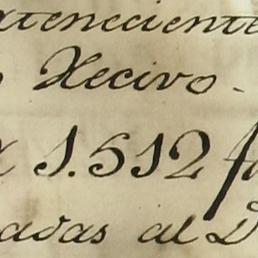 ateneciente
Xecivo.
1.512
adas al D